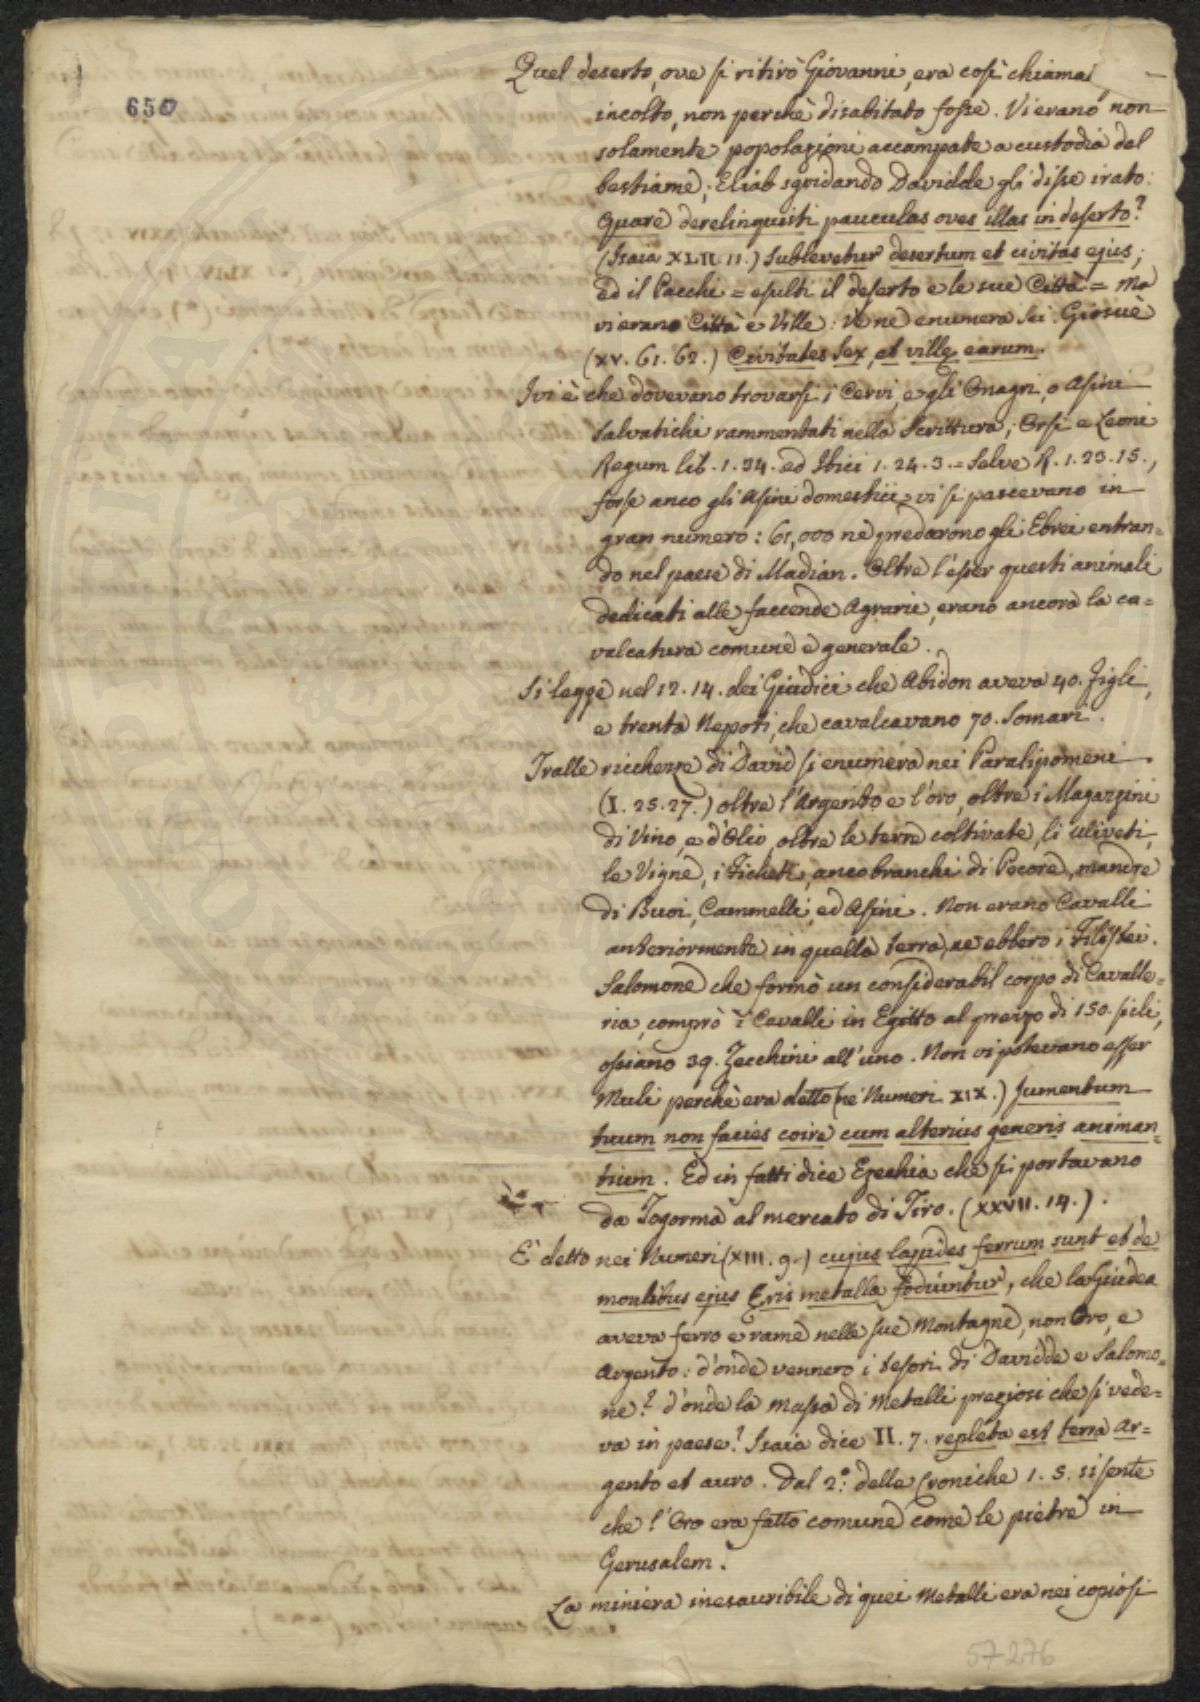 650
Quel deserto, ove si ritirò Giovanni, era così chiama
incolto, non perchè disabitato fosse. Vi erano non
solamente popolazioni accampate a custodia del
bestiame; Eliab sgridando Davidde gli disse irato:
Quare derelinquisti pauculas oves illas in deserto?
(Isaia XLII. 11.) Sublevetur desertum et civitas ejus;
ed il Pacchi = esulti il deserto e le sue Città = Ma
vi erano Città e Ville: Ve ne enumera sei Giosuè
(XV. 61. 62.) Civitates sex, et villę earum.
Ivi è che dovevano trovarsi i Cervi, e gli Onagri, o Asini
salvatichi rammentati nella Scrittura; Orsi e Leoni
Regum lib. 1. 34. ed Ibici 1. 24. 3. = Selve R. 1. 23. 15.,
forse anco gli Asini domestici vi si pascevano in
gran numero: 61,000 ne predarono gli Ebrei entran=
do nel paese di Madian. Oltre l'esser questi animali
dedicati alle faccende Agrarie, erano ancora la ca=
valcatura comune e generale.
Si legge nel 12. 14. dei Giudici che Abidon aveva 40. Figli,
e trenta Nepoti, che cavalcavano 70. Somari.
Tralle ricchezze di David si enumera nei Paralipomeni
(I. 25. 27.) oltre l'Argento e l'oro, oltre i Magazzini
di Vino, e d'Olio, oltre le terre coltivate, li uliveti,
le Vigne, i Ficheti, anco branchi di Pecore, mandre
di Buoi, Cammelli, ed Asini. Non erano Cavalli
anteriormente in quella terra, ne ebbero i Filistei.
Salomone che formò un considerabil corpo di Cavalle=
ria, comprò i Cavalli in Egitto al prezzo di 150. sicli,
ossiano 39. Zecchini all'uno. Non vi potevano esser
Muli, perchè era detto (ne' Numeri XIX.) Jumentum
tuum non facies coire cum alterius generis animan=
tium. Ed in fatti dice Ezechia che si portavano
da Togorma al mercato di Tiro. (XXVII. 14.).
E' detto nei Numeri (XIII. 9.) cujus lapides ferrum sunt et de
montibus ejus Ęris metalla fodiuntur, che la Giudea
aveva ferro e rame nelle sue Montagne, non Oro, e
Argento: d'onde vennero i tesori di Davidde e Salomo=
ne? d'onde la massa di Metalli preziosi che si vede=
va in paese? Isaia dice II. 7. repleta est terra Ar=
gento et auro. Dal 2.º delle Croniche 1. 5. si sente
che l'Oro era fatto comune come le pietre in
Gerusalem.
La miniera inesauribile di quei Metalli era nei copiosi
57276